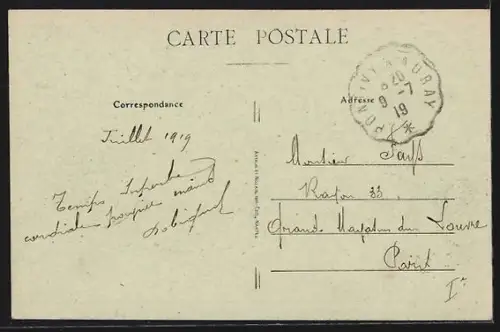 CARTE POSTALE
Correspondance
Adresse
PONTIVY A AURAY
8 20
9 -7
19
Juillet 1919
Temps superbe
cordiale poignée main
Monsieur Pays
Rayon 33
Grands Magasins du Louvre
Paris
Ier